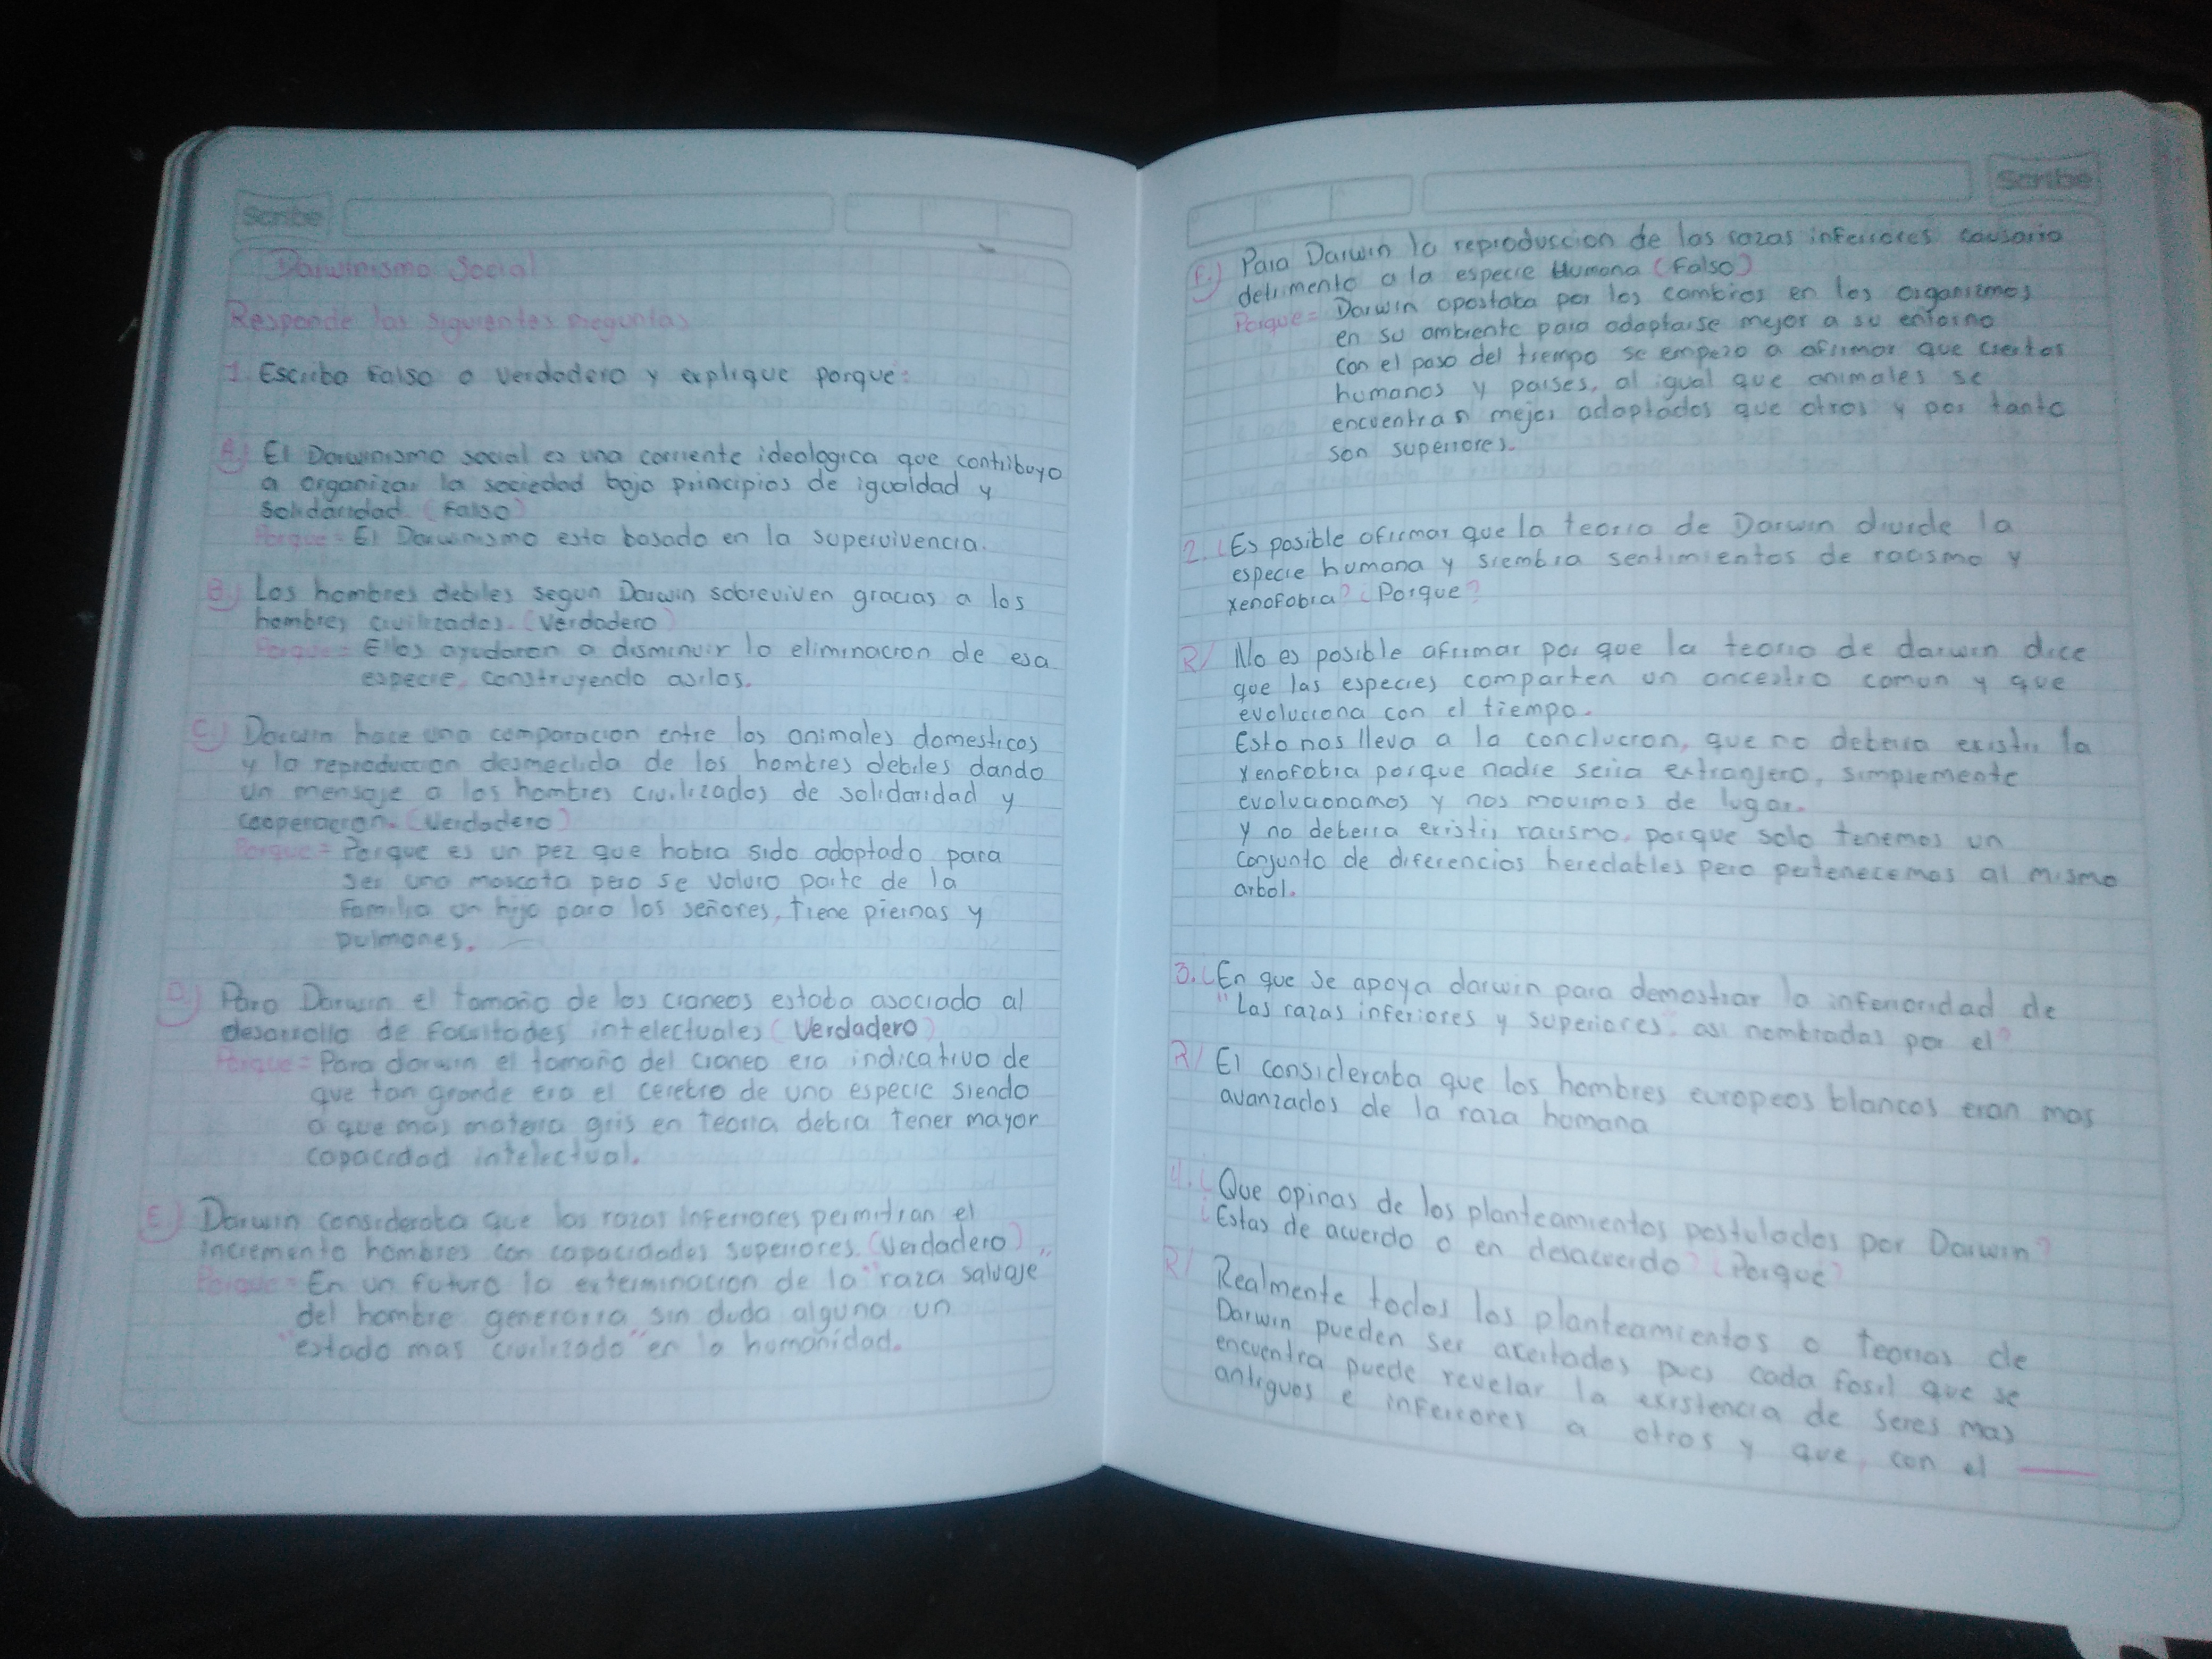 Scribe
Darwinismo Social
Responde las siguientes preguntas
1. Escriba Falso o verdadero y explique porque:
A.) El Darwinismo social es una corriente ideologica que contribuyo
a organizar la sociedad bajo principios de igualdad y
Solidaridad. (Falso)
Porque = El Darwinismo esta basado en la supervivencia.
B.) Los hombres debiles segun Darwin sobreviven gracias a los
hombres civilizados. (Verdadero)
Porque = Ellos ayudaron a disminuir la eliminacion de esa
especie, construyendo asilos.
C.) Darwin hace una comparacion entre los animales domesticos
y la reproduccion desmedida de los hombres debiles dando
un mensaje a los hombres civilizados de solidaridad y
cooperacion. (Verdadero)
Porque = Porque es un pez que habia sido adoptado para
ser una mascota pero se volvio parte de la
Familia un hijo para los señores, tiene piernas y
pulmones.
D.) Para Darwin el tamaño de los craneos estaba asociado al
desarrollo de facultades intelectuales (Verdadero)
Porque = Para darwin el tamaño del craneo era indicativo de
que tan grande era el cerebro de una especie siendo
a que mas materia gris en teoria debia tener mayor
capacidad intelectual.
E.) Darwin consideraba que las razas inferiores permitian el
incremento hombres con capacidades superiores. (Verdadero)
Porque = En un futuro la exterminacion de la "raza salvaje"
del hombre generaria sin duda alguna un
"estado mas civilizado" en la humanidad.
Scribe
F.) Para Darwin la reproduccion de las razas inferiores causaria
detrimento a la especie Humana (Falso)
Porque = Darwin apostaba por los cambios en los organismos
en su ambiente para adaptarse mejor a su entorno
con el paso del tiempo se empezo a afirmar que ciertos
humanos y paises, al igual que animales se
encuentran mejor adaptados que otros y por tanto
son superiores.
2. ¿Es posible afirmar que la teoria de Darwin divide la
especie humana y siembra sentimientos de racismo y
xenofobia? ¿Porque?
R/ No es posible afirmar por que la teoria de darwin dice
que las especies comparten un ancestro comun y que
evoluciona con el tiempo.
Esto nos lleva a la conclucion, que no deberia existir la
xenofobia porque nadie seria extranjero, simplemente
evolucionamos y nos movimos de lugar.
y no deberia existir racismo, porque solo tenemos un
conjunto de diferencias heredables pero pertenecemos al mismo
arbol.
3. ¿En que se apoya darwin para demostrar la inferioridad de
"Las razas inferiores y superiores", asi nombradas por el?
R/ El consideraba que los hombres europeos blancos eran mas
avanzados de la raza humana
4. ¿Que opinas de los planteamientos postulados por Darwin?
¿Estas de acuerdo o en desacuerdo? ¿Porque?
R/ Realmente todos los planteamientos o teorias de
Darwin pueden ser acertados pues cada fosil que se
encuentra puede revelar la existencia de seres mas
antiguos e inferiores a otros y que, con el